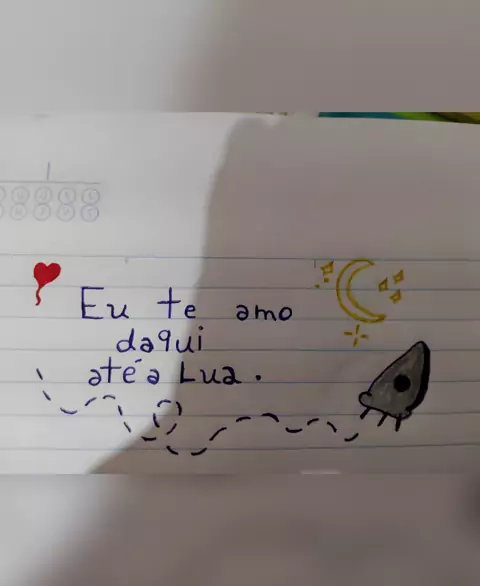 Eu te amo
daqui
até a Lua.